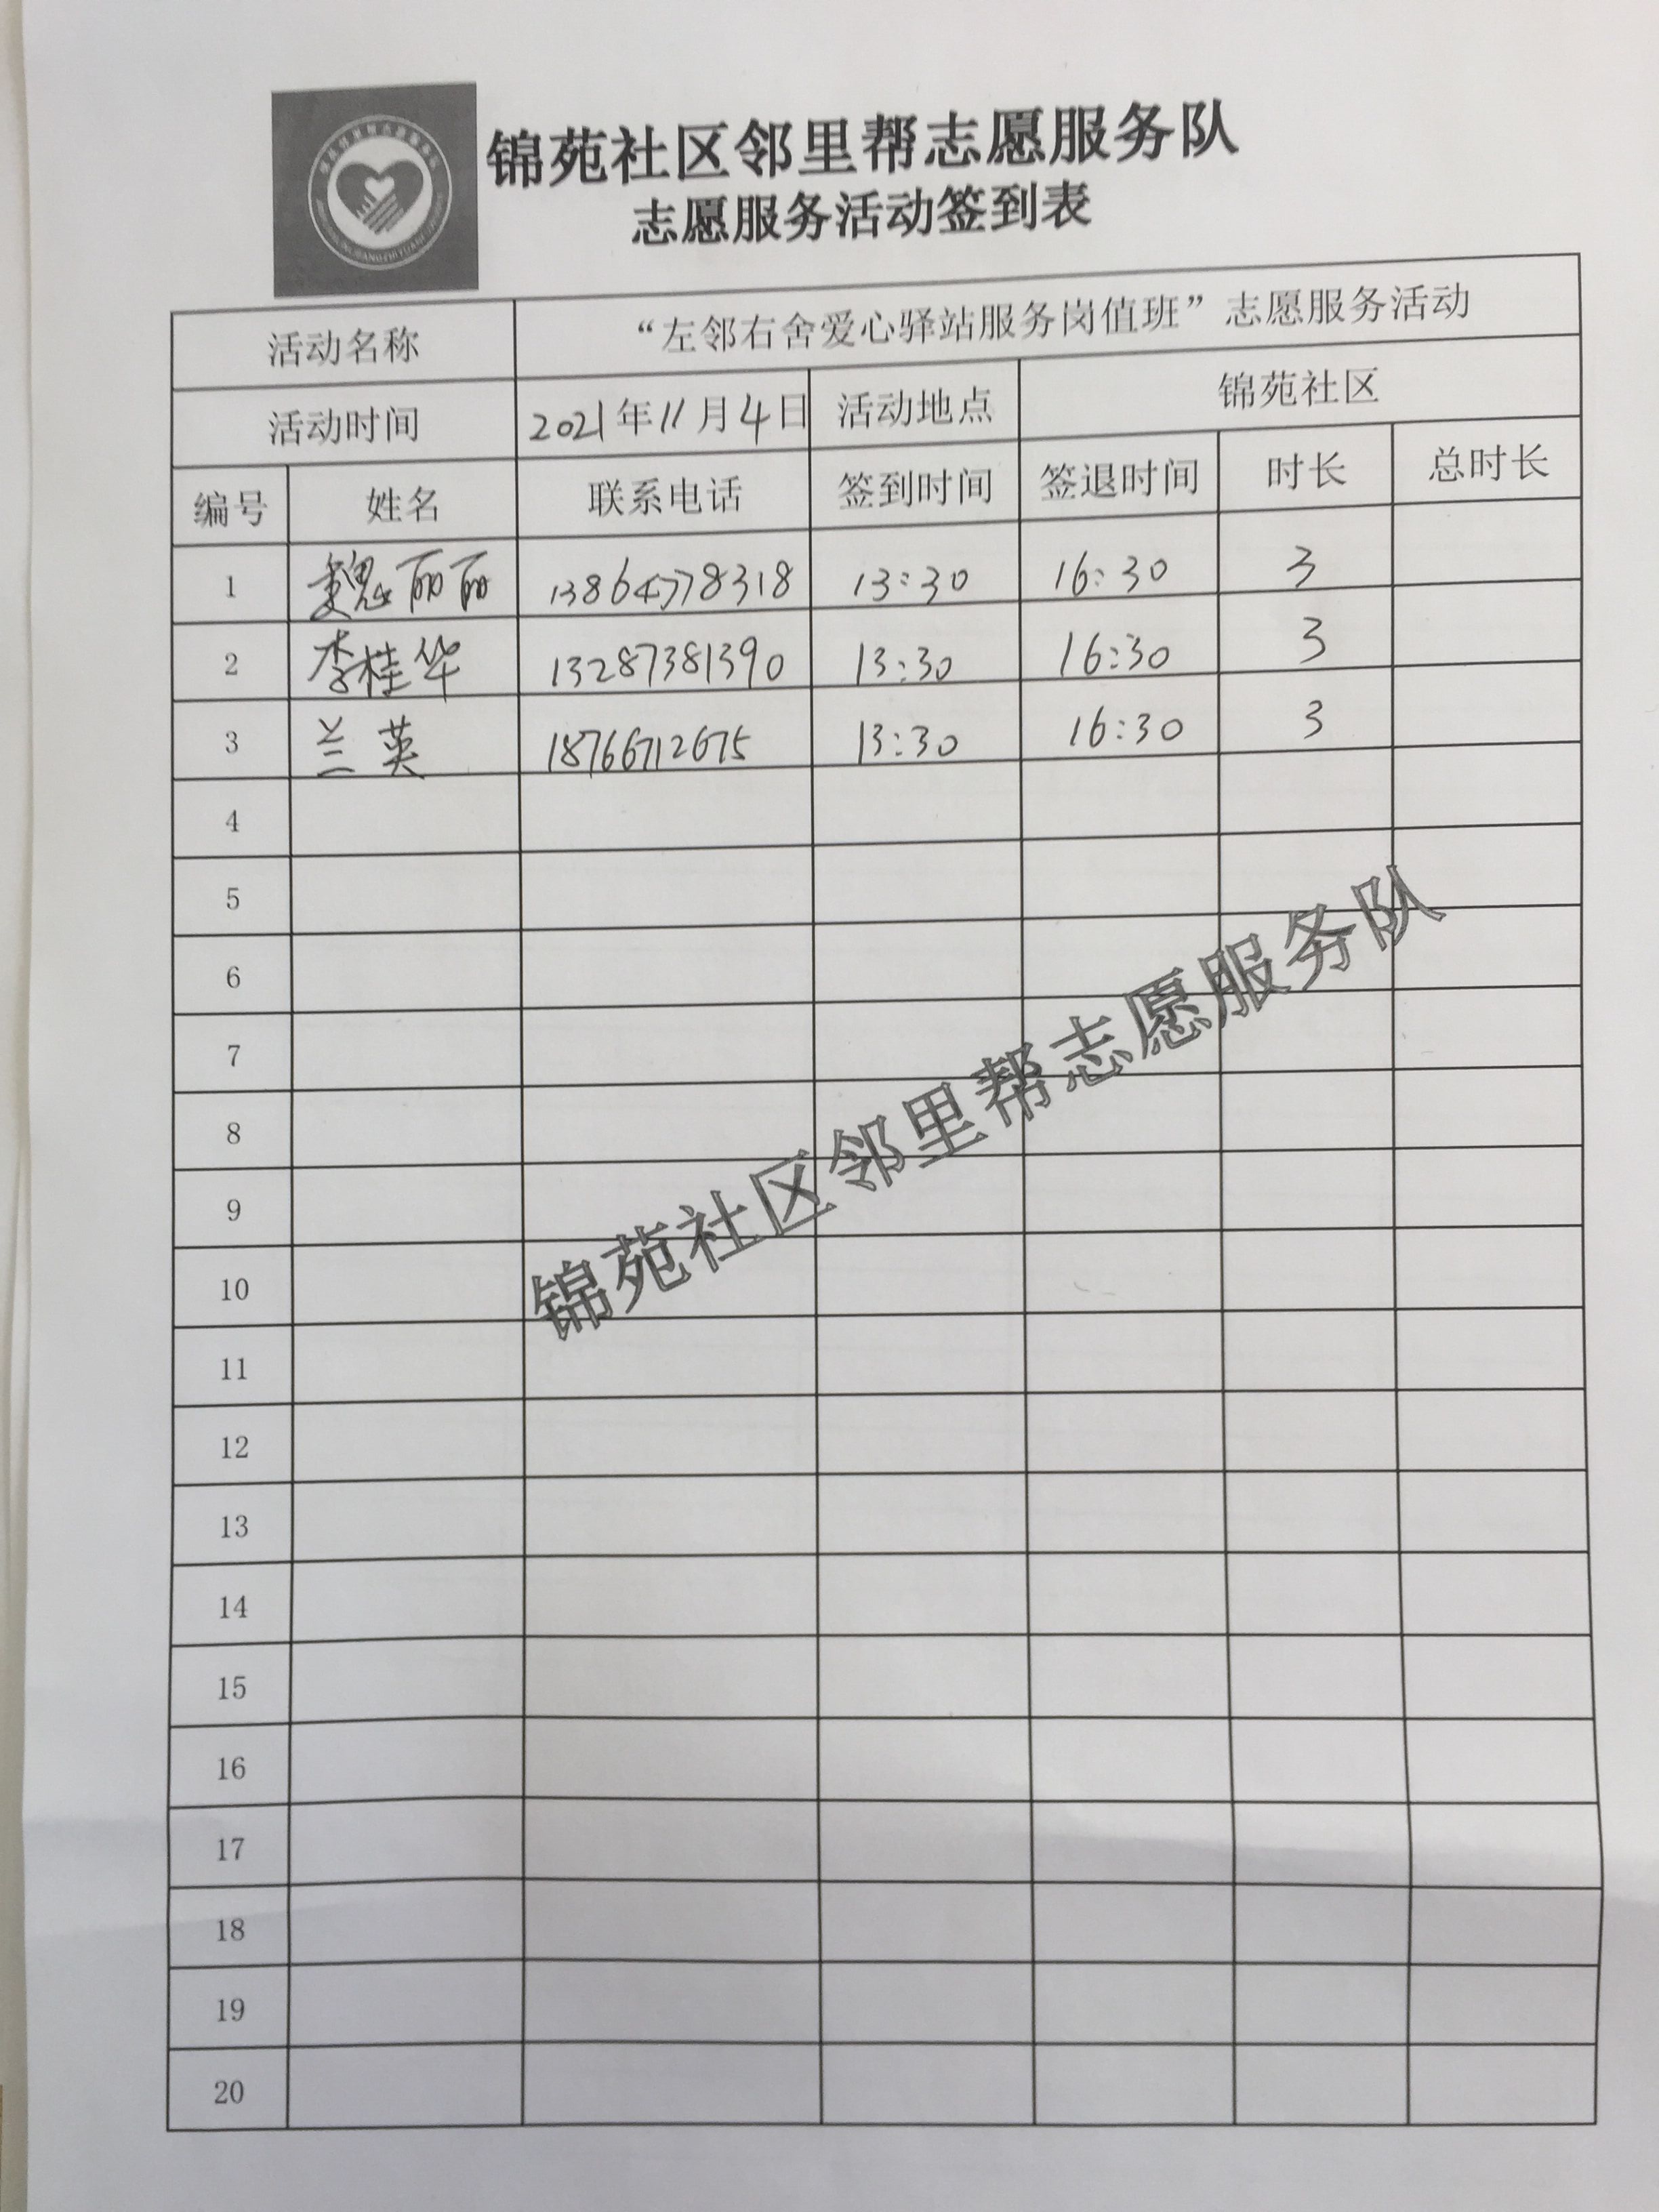 锦苑社区邻里帮志愿服务队
志愿服务活动签到表
活动名称 “左邻右舍爱心驿站服务岗值班”志愿服务活动
活动时间 2021年11月4日 活动地点 锦苑社区
编号 姓名 联系电话 签到时间 签退时间 时长 总时长
1 魏丽丽 13864778318 13:30 16:30 3
2 李桂华 13287381390 13:30 16:30 3
3 兰英 18766712675 13:30 16:30 3
4
5
6
7
8
9
10
11
12
13
14
15
16
17
18
19
20
锦苑社区邻里帮志愿服务队